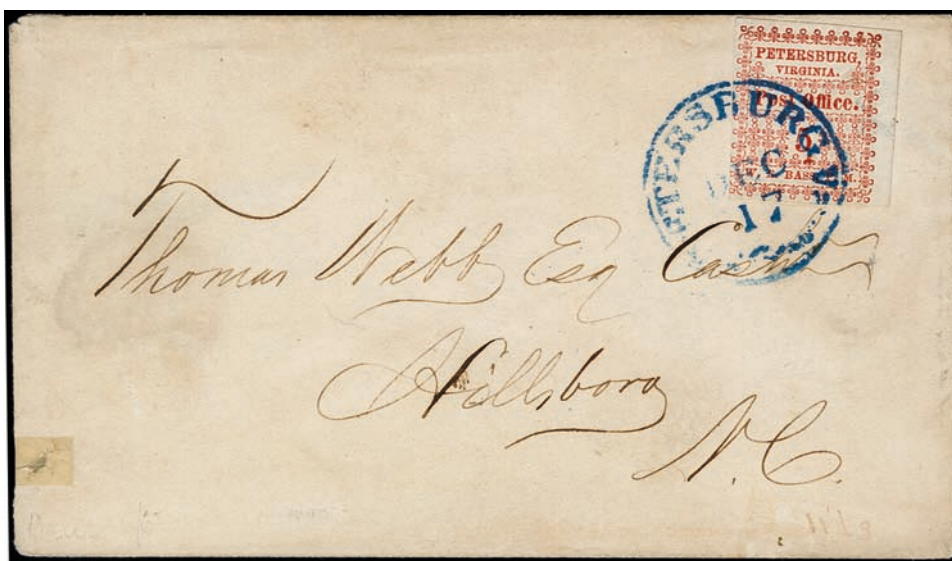 PETERSBURG,
VIRGINIA.
Post Office.
5
W. E. BASS, P.M.
PETERSBURG VA.
DEC
17
Thomas Webb Esq Cashr
Hillsboro
N.C.